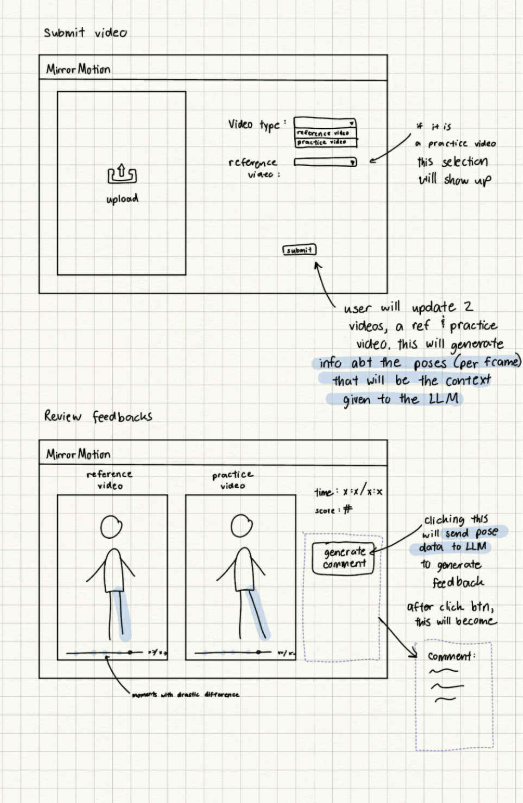 Submit video
MirrorMotion
upload
Video type :
reference video
practice video
reference
video :
if it is
a practice video
this selection
will show up
submit
user will update 2
videos, a ref & practice
video. this will generate
info abt the poses (per frame)
that will be the context
given to the LLM
Review feedbacks
MirrorMotion
reference
video
practice
video
time : x:x/x:x
score : #
generate
comment
clicking this
will send pose
data to LLM
to generate
feedback
after click btn,
this will become
xx/xx
xx/xx
moments with drastic difference
Comment :